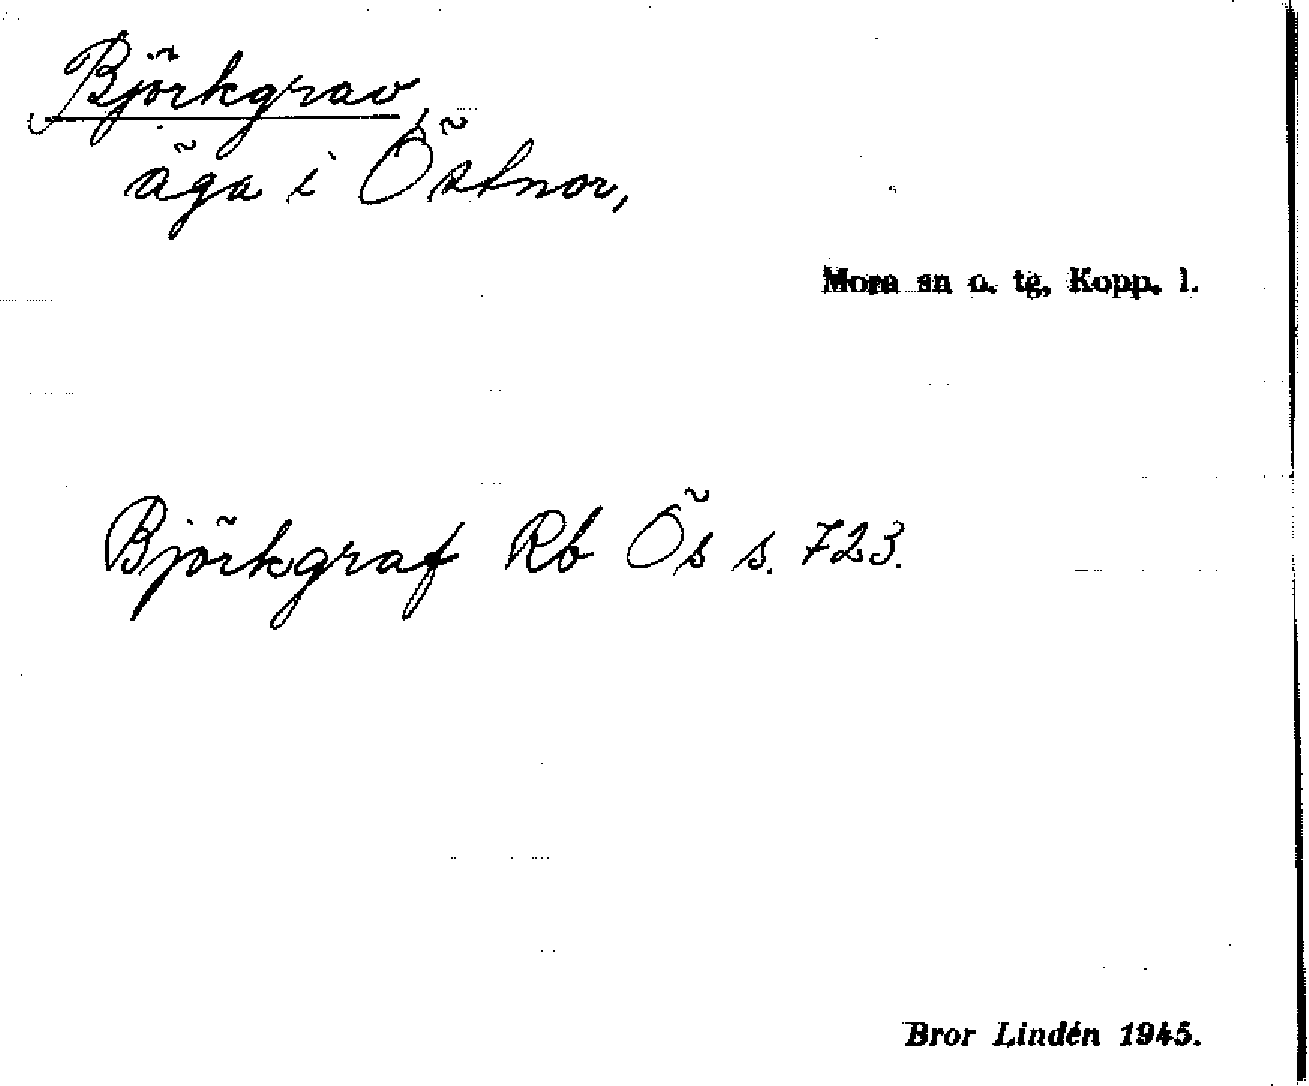 Björkgrav
äga i Östnor,
Mora sn o. tg, Kopp. l.
Björkgraf Rb Ös s. 723.
Bror Lindén 1945.